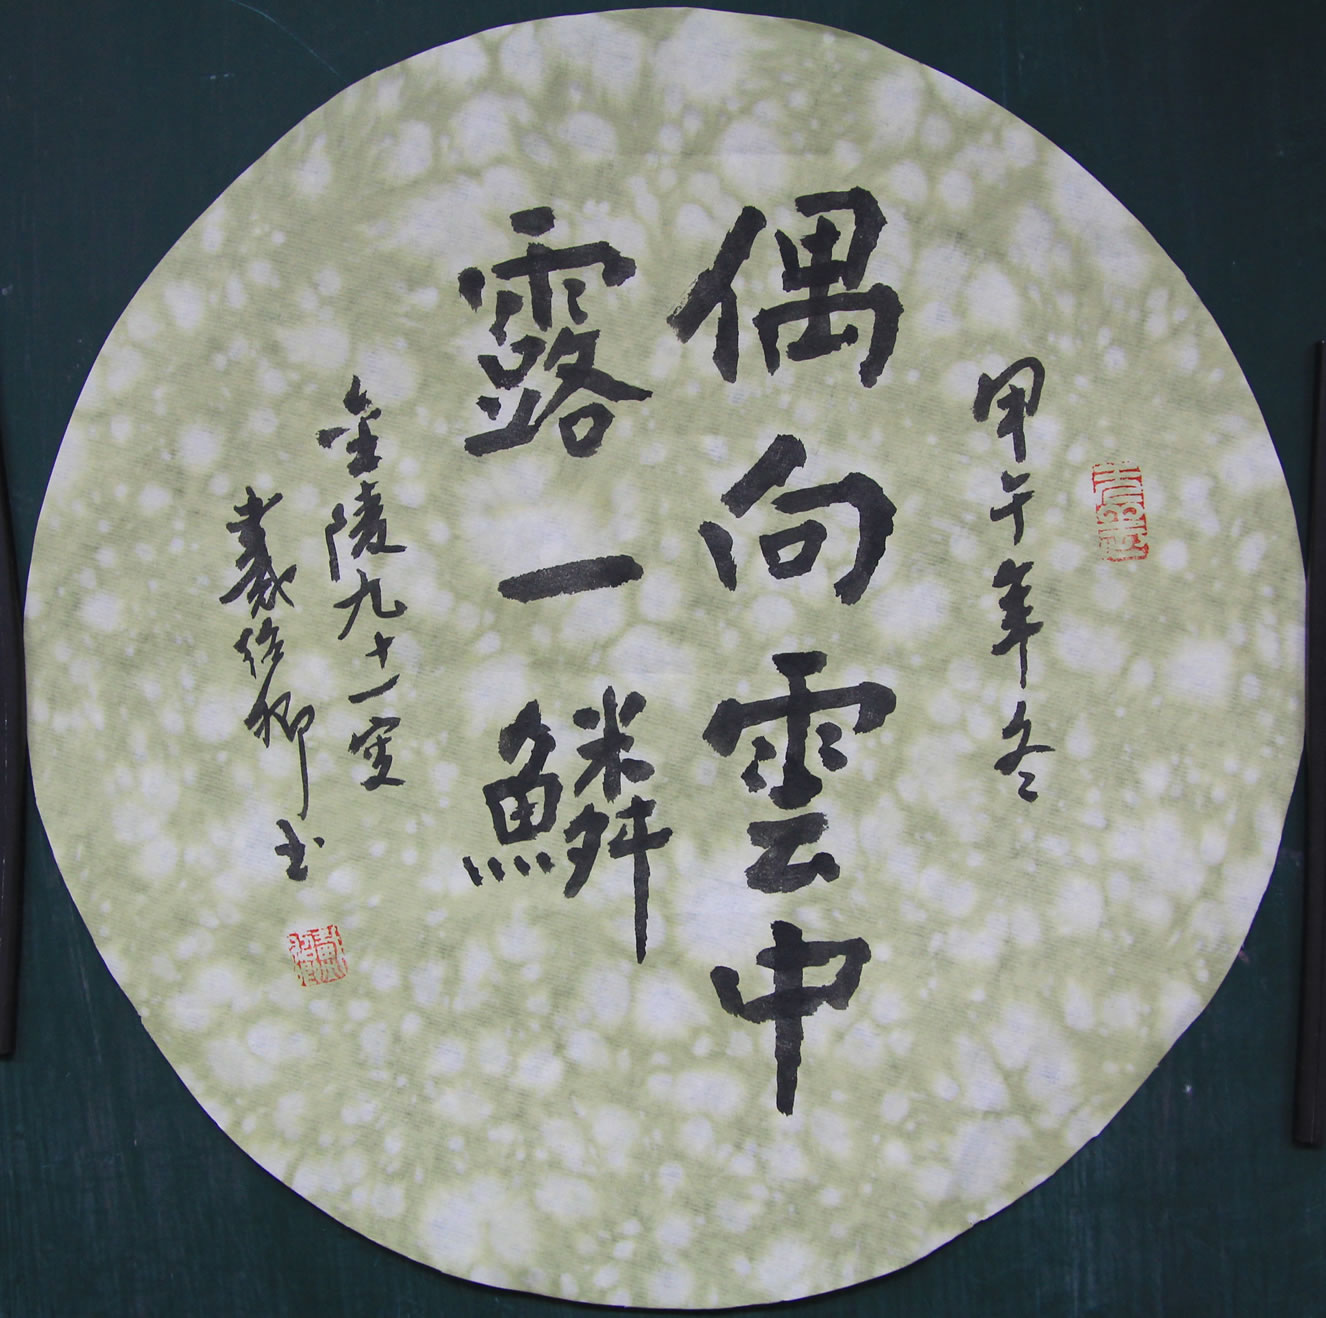 甲午年冬
偶向雲中
露一鱗
金陵九十一叟
戴紹卿書